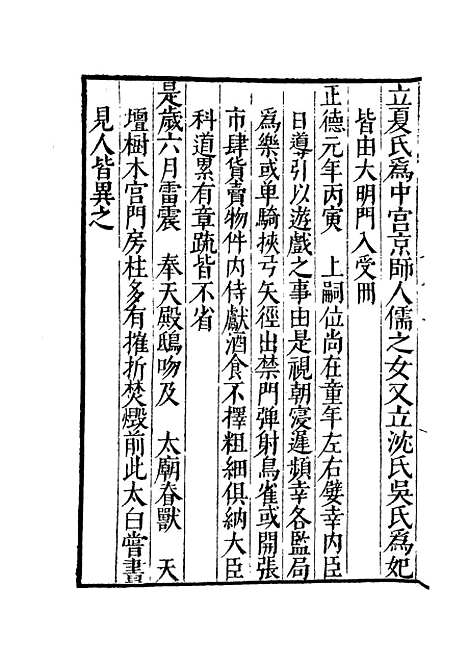 立夏氏爲中宮京師人儒之女又立沈氏吳氏爲妃
皆由大明門入受冊
正德元年丙寅　上嗣位尚在童年左右嬖幸內臣
日導引以遊戲之事由是視朝寖遲頻幸各監局
爲樂或單騎挾弓矢徑出禁門彈射鳥雀或開張
市肆貨賣物件內侍獻酒食不擇粗細俱納大臣
科道累有章疏皆不省
是歲六月雷震　奉天殿鴟吻及　太廟春獸　天
壇樹木宮門房柱多有摧折焚燬前此太白嘗晝
見人皆異之